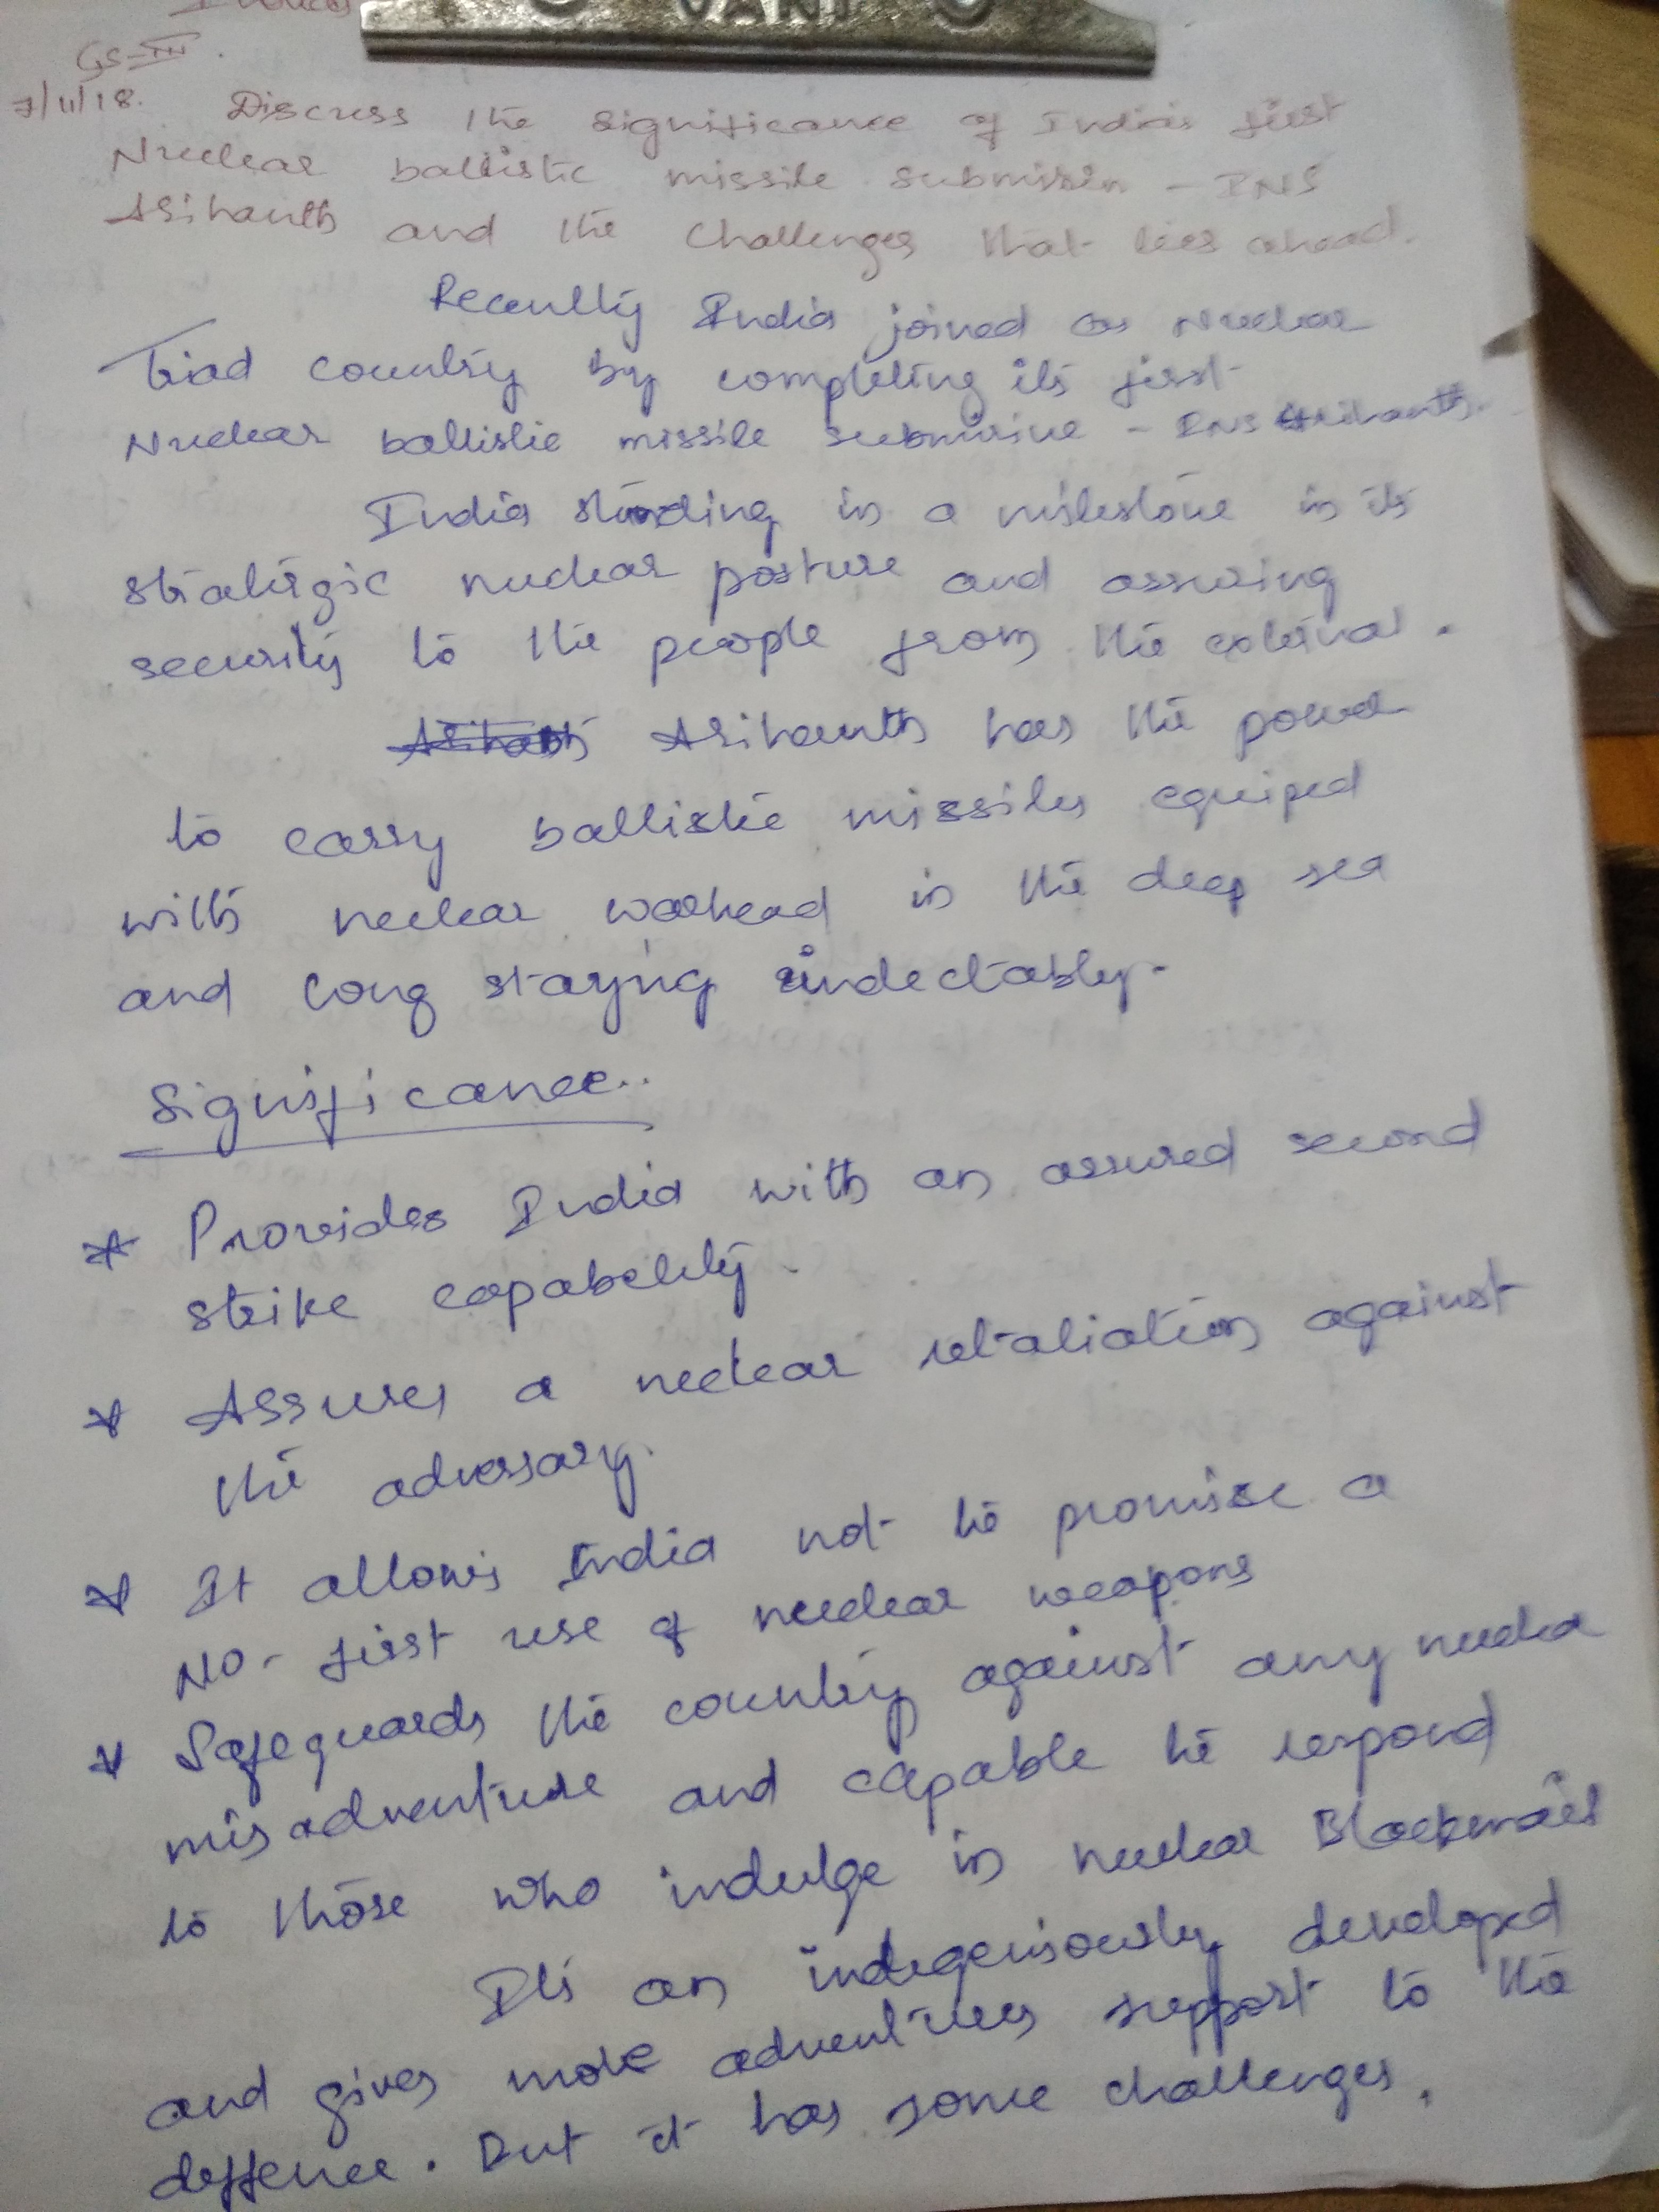 VANI
GS-III.
7/11/18. Discuss the significance of India's first
Nuclear ballistic missile submisin - INS
Arihanth and the challenges that lies ahead.
Recently India joined as Nuclear
Triad country by completing its first
Nuclear ballistic missile submirine - INS Arihanth.
India standing in a milestone in its
strategic nuclear posture and assuring
security to the people from the external.
Arihanth has the power
to carry ballistic missiles equiped
with nuclear warhead in the deep sea
and long staying undectably.
Significance..
* Provides India with an assured second
strike capability.
* Assures a nuclear retaliation against
the adversary.
* It allows India not to promise a
No-first use of nuclear weapons
* Safeguards the country against any nuclear
misadventure and capable to respond
to those who indulge in nuclear Blackmail
It's an indegeniously developed
and gives more adventures support to the
deffence. But it has some challenges.